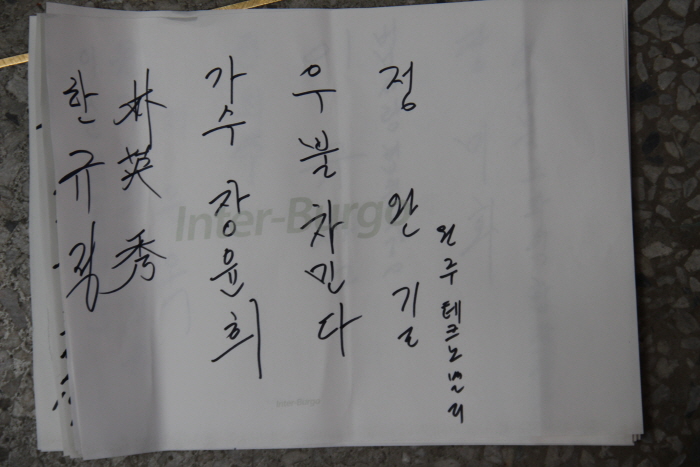 원주테크노밸리
정 완 길
우불차민다
가수 장윤희
朴英秀
한규
Inter-Burgo
Inter-Burgo